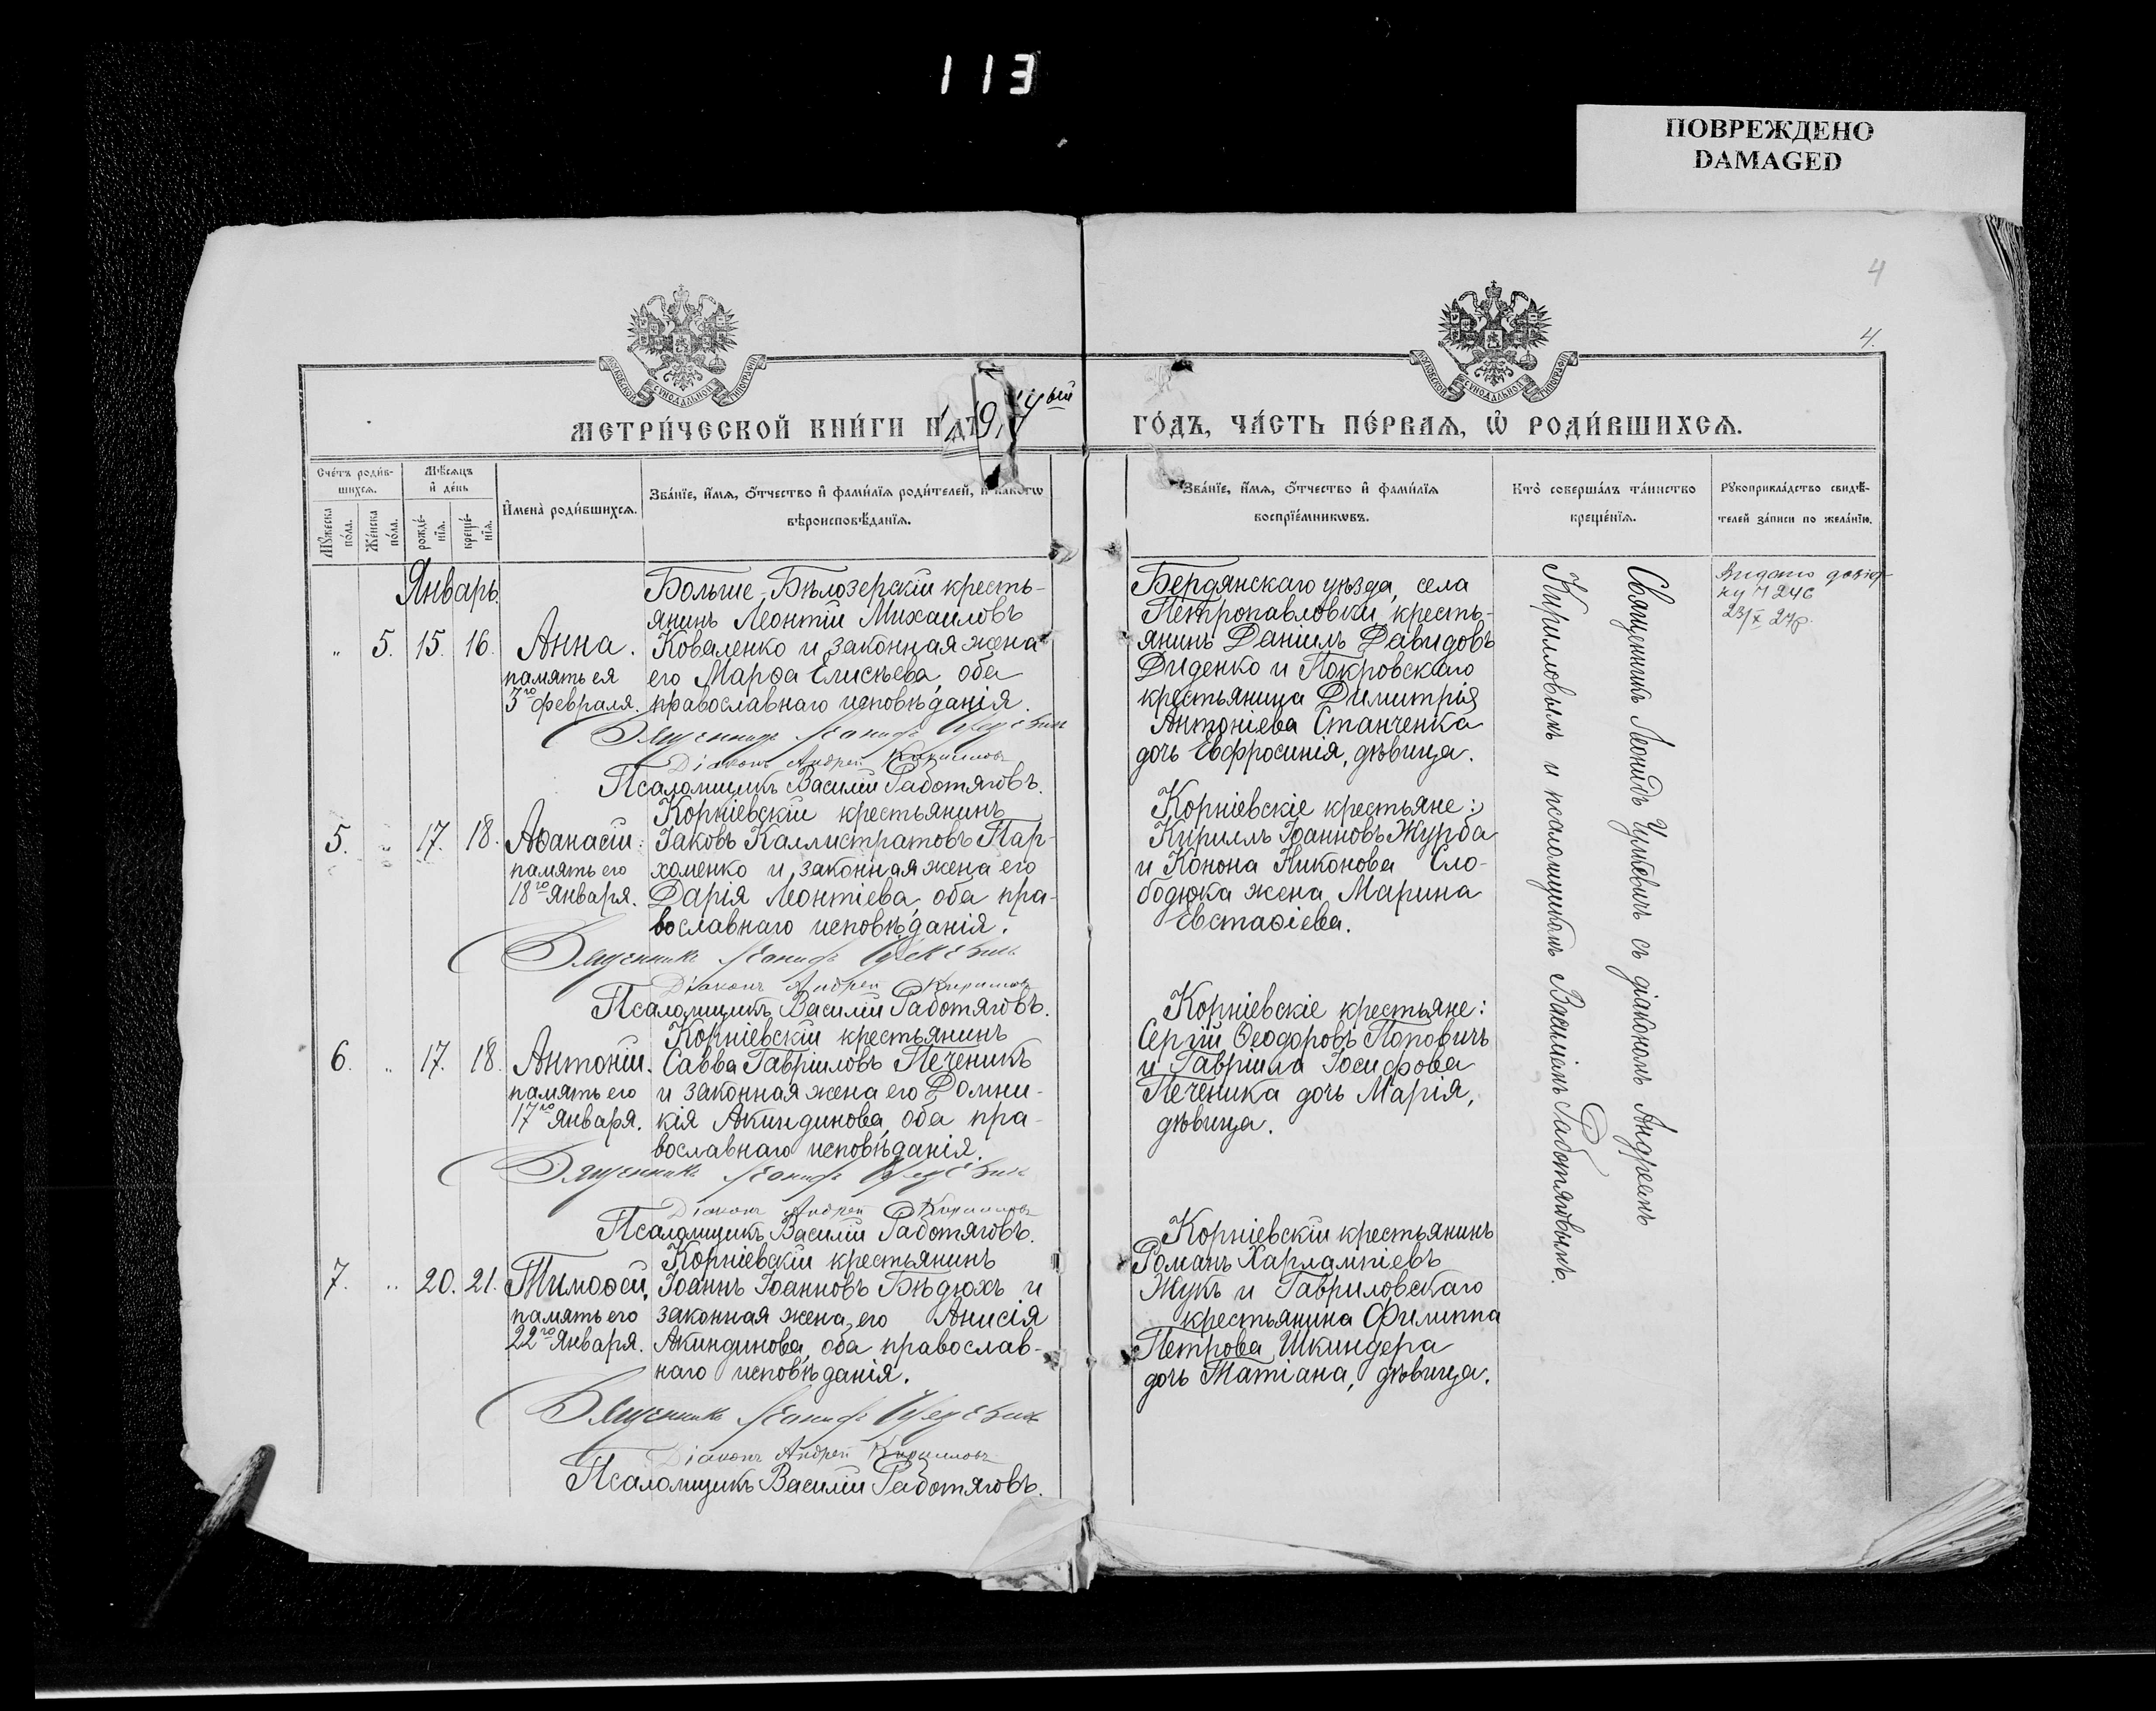 113
ПОВРЕЖДЕНО
DAMAGED
4
4.
МЕТРИ́ЧЕСКОЙ КНИ́ГИ НА 191 ый ГО́ДЪ, ЧА́СТЬ ПЕ́РВАЯ, Ѡ РОДИ́ВШИХСЯ.
Сче́тъ роди́в-
шихсѧ.
Мꙋ́жеска по́ла.
Же́нска по́ла.
Мѣ́сѧцъ
и҆ де́нь
рожде́-
нїѧ.
креще́-
нїѧ.
И҆мена̀ роди́вшихсѧ.
Зва́нїе, и҆́мѧ, ѻ҆́тчество и҆ фами́лїѧ роди́телей, и҆ како́гѡ
вѣроисповѣ́данїѧ.
Зва́нїе, и҆́мѧ, ѻ҆́тчество и҆ фами́лїѧ
воспрїе́мникѡвъ.
Кто̀ соверша́лъ та́инство
креще́нїѧ.
Рꙋкоприкла́дство свидѣ́-
телей за́писи по жела́нїю.
Январь.
„ 5. 15. 16.
Анна.
память ея
3го февраля.
Больше-Бѣлозерскій кресть-
янинъ Леонтій Михаиловъ
Коваленко и законная жена
его Марѳа Елисѣева, оба
православнаго исповѣданія.
Священникъ Леонидъ
Діаконъ Андрей Кирилловъ
Псаломщикъ Василій Работяговъ.
Бердянскаго уѣзда, села
Петропавловки, кресть-
янинъ Даніилъ Давидовъ
Диденко и Покровскаго
крестьянина Димитрія
Антоніева Станченка
дочь Евфросинія, дѣвица.
Священникъ Леонидъ съ діакономъ Андреемъ
Кирилловымъ и псаломщикомъ Василіемъ Работяговымъ.
5. „ 17. 18.
Аѳанасій:
память его
18го Января.
Корніевскій крестьянинъ
Іаковъ Каллистратовъ Пар-
хоменко и законная жена его
Дарія Леонтіева, оба пра-
вославнаго исповѣданія.
Священникъ Леонидъ
Діаконъ Андрей Кирилловъ
Псаломщикъ Василій Работяговъ.
Корніевскіе крестьяне:
Кириллъ Іоанновъ Журба
и Конона Никонова Сло-
бодюка жена Марина
Евстаѳіева.
6. „ 17. 18.
Антоній.
память его
17го Января.
Корніевскій крестьянинъ
Савва Гавріиловъ Печеникъ
и законная жена его Домни-
кія Акиндинова, оба пра-
вославнаго исповѣданія.
Священникъ Леонидъ
Діаконъ Андрей Кирилловъ
Псаломщикъ Василій Работяговъ.
Корніевскіе крестьяне:
Сергій Ѳеодоровъ Поповичъ
и Гавріила Іосифова
Печеника дочь Марія,
дѣвица.
7. „ 20. 21.
Тимоѳей,
память его
22го Января.
Корніевскій крестьянинъ
Іоаннъ Іоанновъ Бѣдюхъ и
законная жена его Анисія
Акиндинова, оба православ-
наго исповѣданія.
Священникъ Леонидъ
Діаконъ Андрей Кирилловъ
Псаломщикъ Василій Работяговъ.
Корніевскій крестьянинъ
Романъ Харлампіевъ
Жукъ и Гавриловскаго
крестьянина Филиппа
Петрова Шкиндера
дочь Татіана, дѣвица.